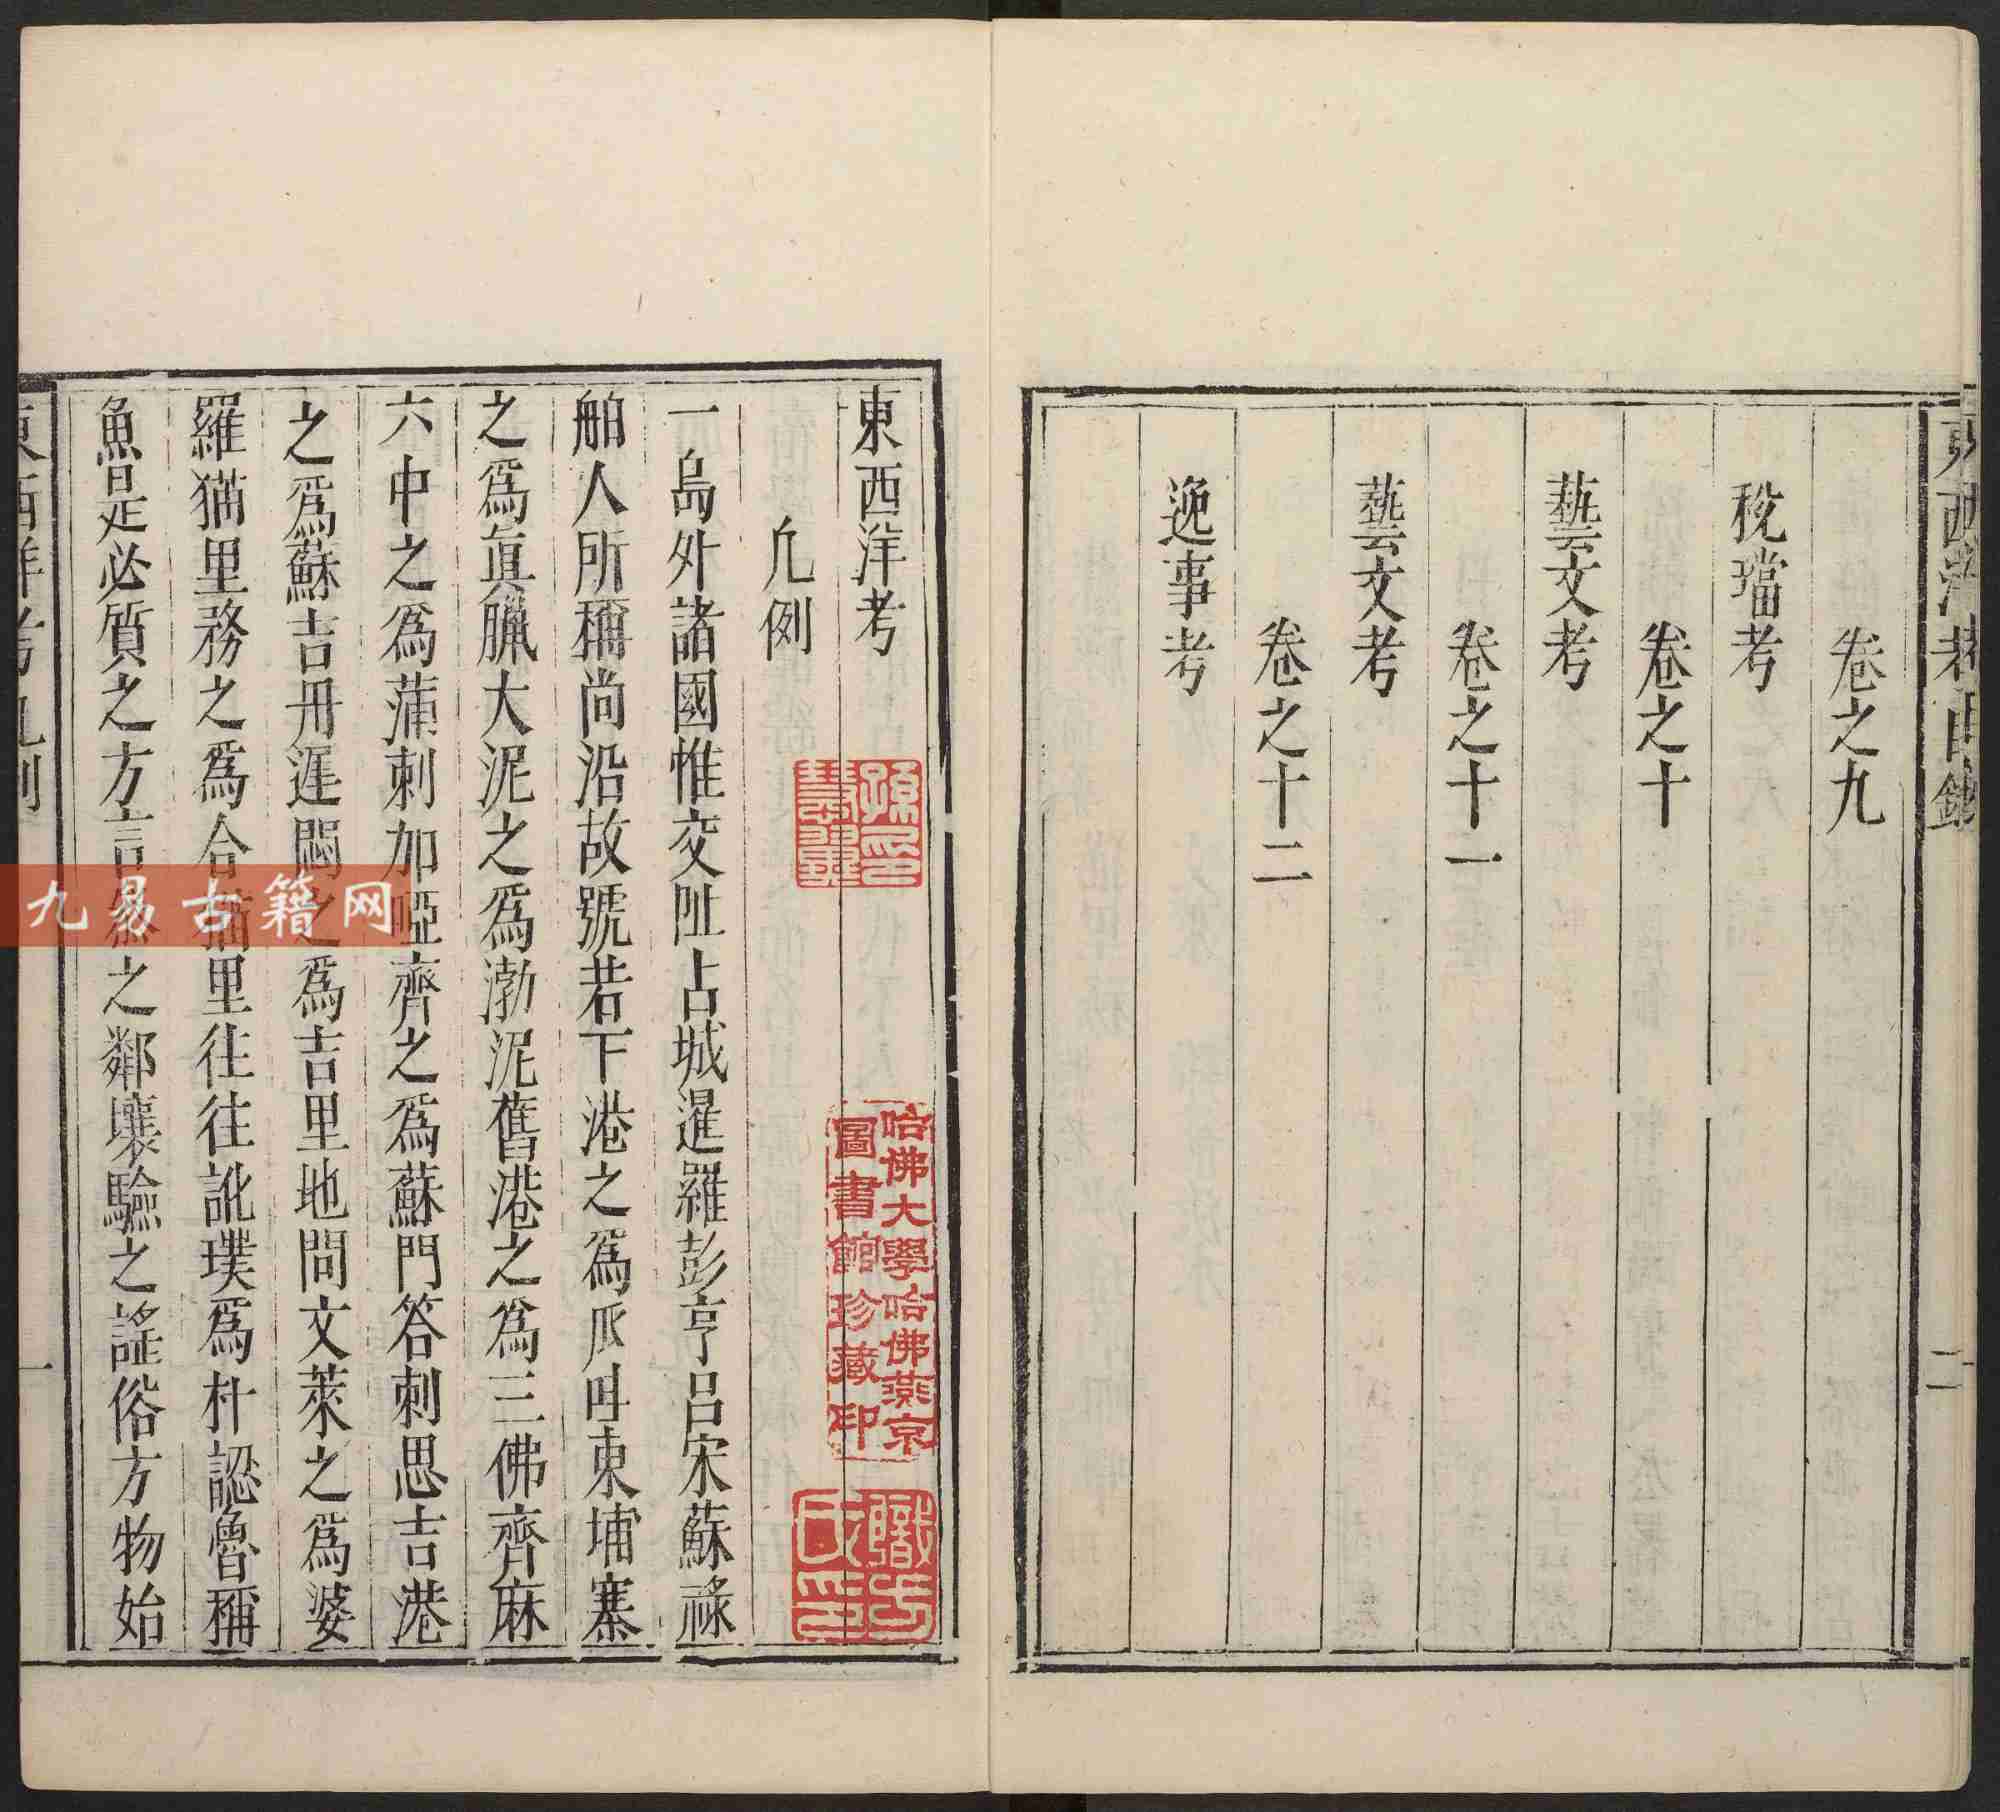 東西洋考目錄
二
卷之九
稅璫考
卷之十
藝文考
卷之十一
藝文考
卷之十二
逸事考
東西洋考
凡例
一島外諸國惟交阯占城暹羅彭亨呂宋蘇祿
舶人所稱尚沿故號若下港之為爪哇柬埔寨
之為真臘大泥之為渤泥舊港之為三佛齊麻
六甲之為蒲剌加啞齊之為蘇門答剌思吉港
之為蘇吉丹遲悶之為吉里地問文萊之為婆
羅猫里務之為合猫里往往訛璞為朴認魯稱
魚是必質之方言
之鄰壤驗之謠俗方物始
東西洋考凡例
一
哈佛大學哈佛燕京
圖書館珍藏印
職方
氏印
九易古籍网